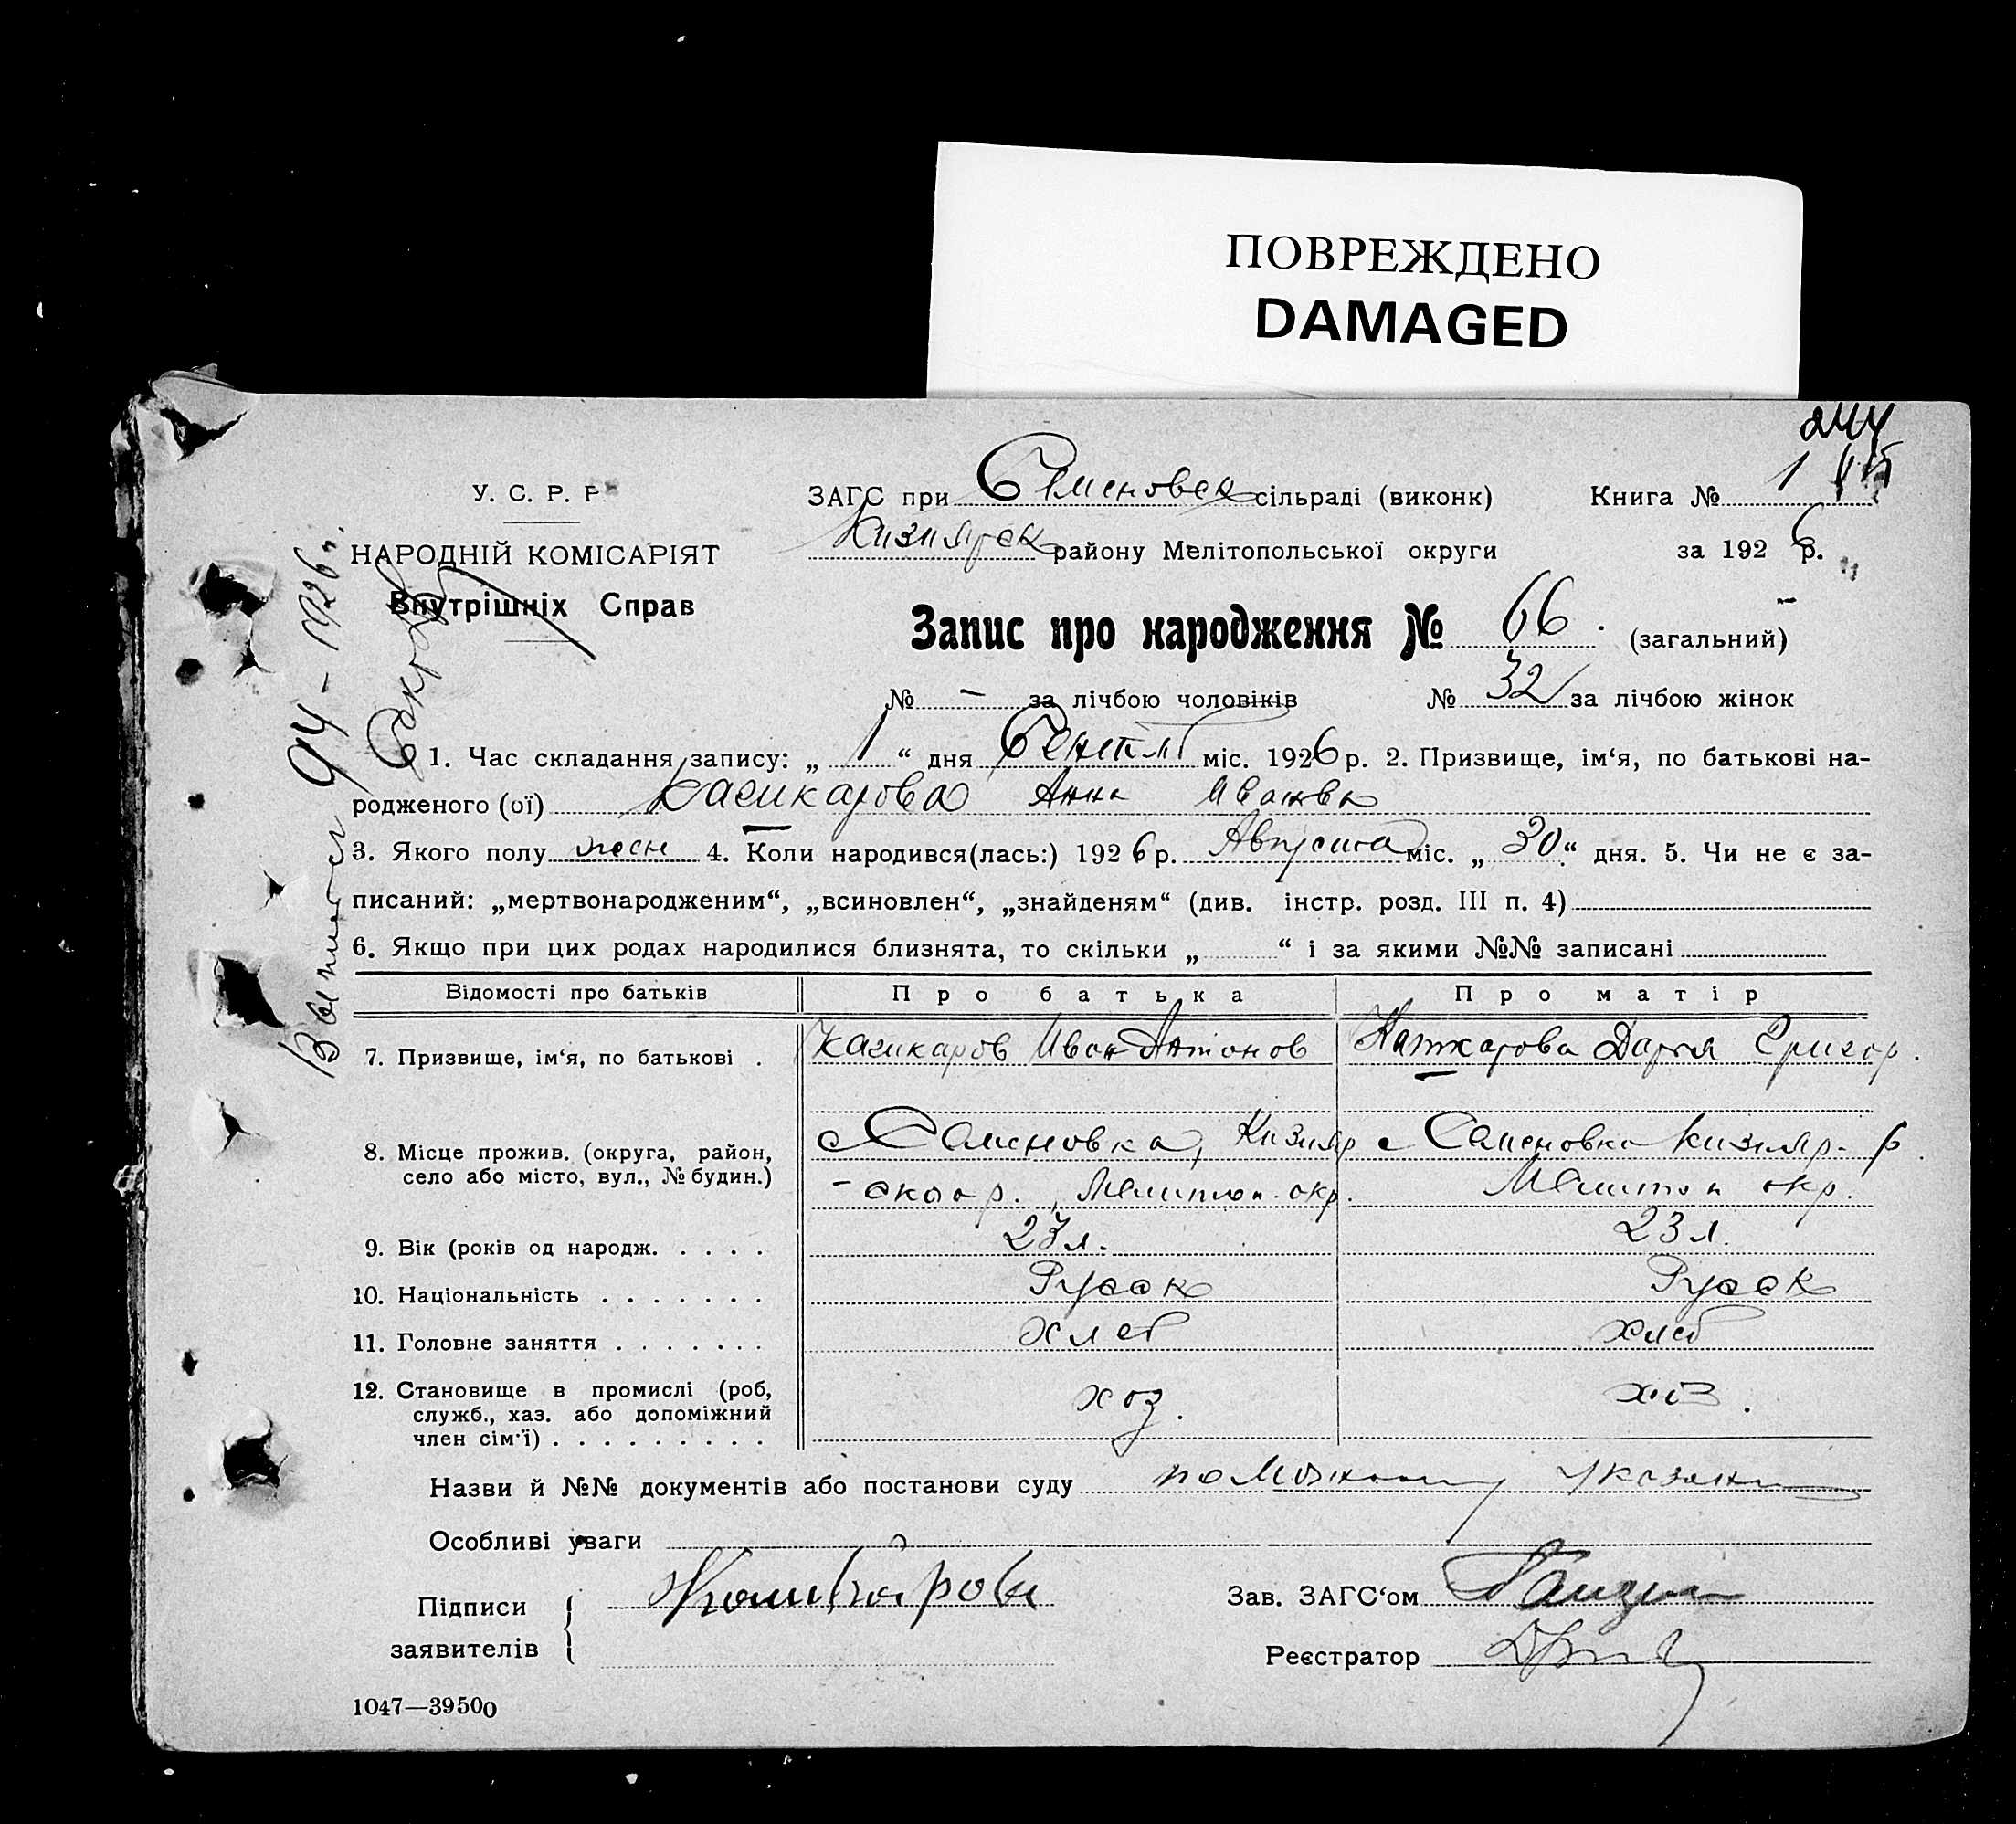 ПОВРЕЖДЕНО
DAMAGED
244
У. С. Р. Р
ЗАГС при Семеновск сільраді (виконк)
Книга № 1
НАРОДНІЙ КОМІСАРІЯТ
Кизиярск району Мелітопольської округи
за 1926 р.
Внутрішніх Справ
Запис про народження № 66. (загальний)
№ - за лічбою чоловіків № 32 за лічбою жінок
94 - 1926
1. Час складання запису: „ 1 “ дня Сентяб міс. 1926 р. 2. Призвище, ім‘я, по батькові на-
родженого (ої) Кашкарова Анна Ивановн
3. Якого полу жен 4. Коли народився(лась:) 1926 р. Августа міс. „ 30 “ дня. 5. Чи не є за-
писаний: „мертвонародженим“, „всиновлен“, „знайденям“ (див. інстр. розд. III п. 4)
6. Якщо при цих родах народилися близнята, то скільки „ “ і за якими №№ записані
Відомості про батьків Про батька Про матір
7. Призвище, ім‘я, по батькові . Кашкаров Иван Антонов Кашкарова Дарья Григор.
8. Місце прожив. (округа, район, с Семеновка, Кизияр с Семеновка Кизияр. р
село або місто, вул., № будин.) - ского р. Мелитоп. окр. Мелитоп окр.
9. Вік (років од народж. . . . . 23 л. 23 л.
10. Національність . . . . . . . Русск Русск
11. Головне заняття . . . . . . . хлеб хлеб
12. Становище в промислі (роб, хоз. хоз.
служб., хаз. або допоміжний
член сім‘ї) . . . . . . . . .
Назви й №№ документів або постанови суду
Особливі уваги
Підписи Кашкаров
заявителів
Зав. ЗАГС‘ом
Реєстратор
1047—39500